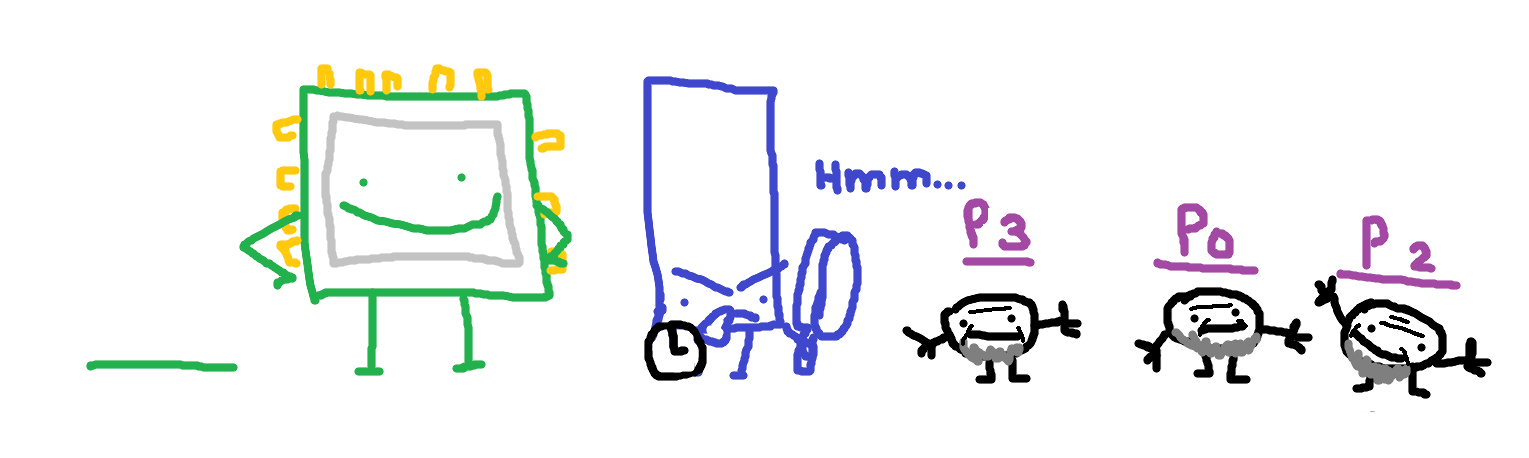 Hmm...
P3
P0
P2